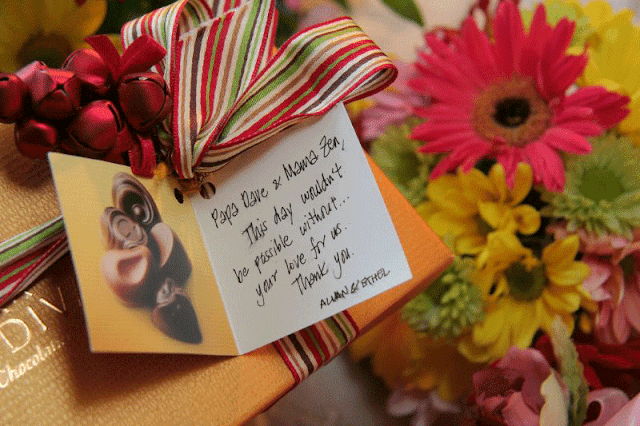 Papa Dave & Mama Zen,
This day wouldn't
be possible without...
your love for us.
Thank you.
DIV
Chocolat